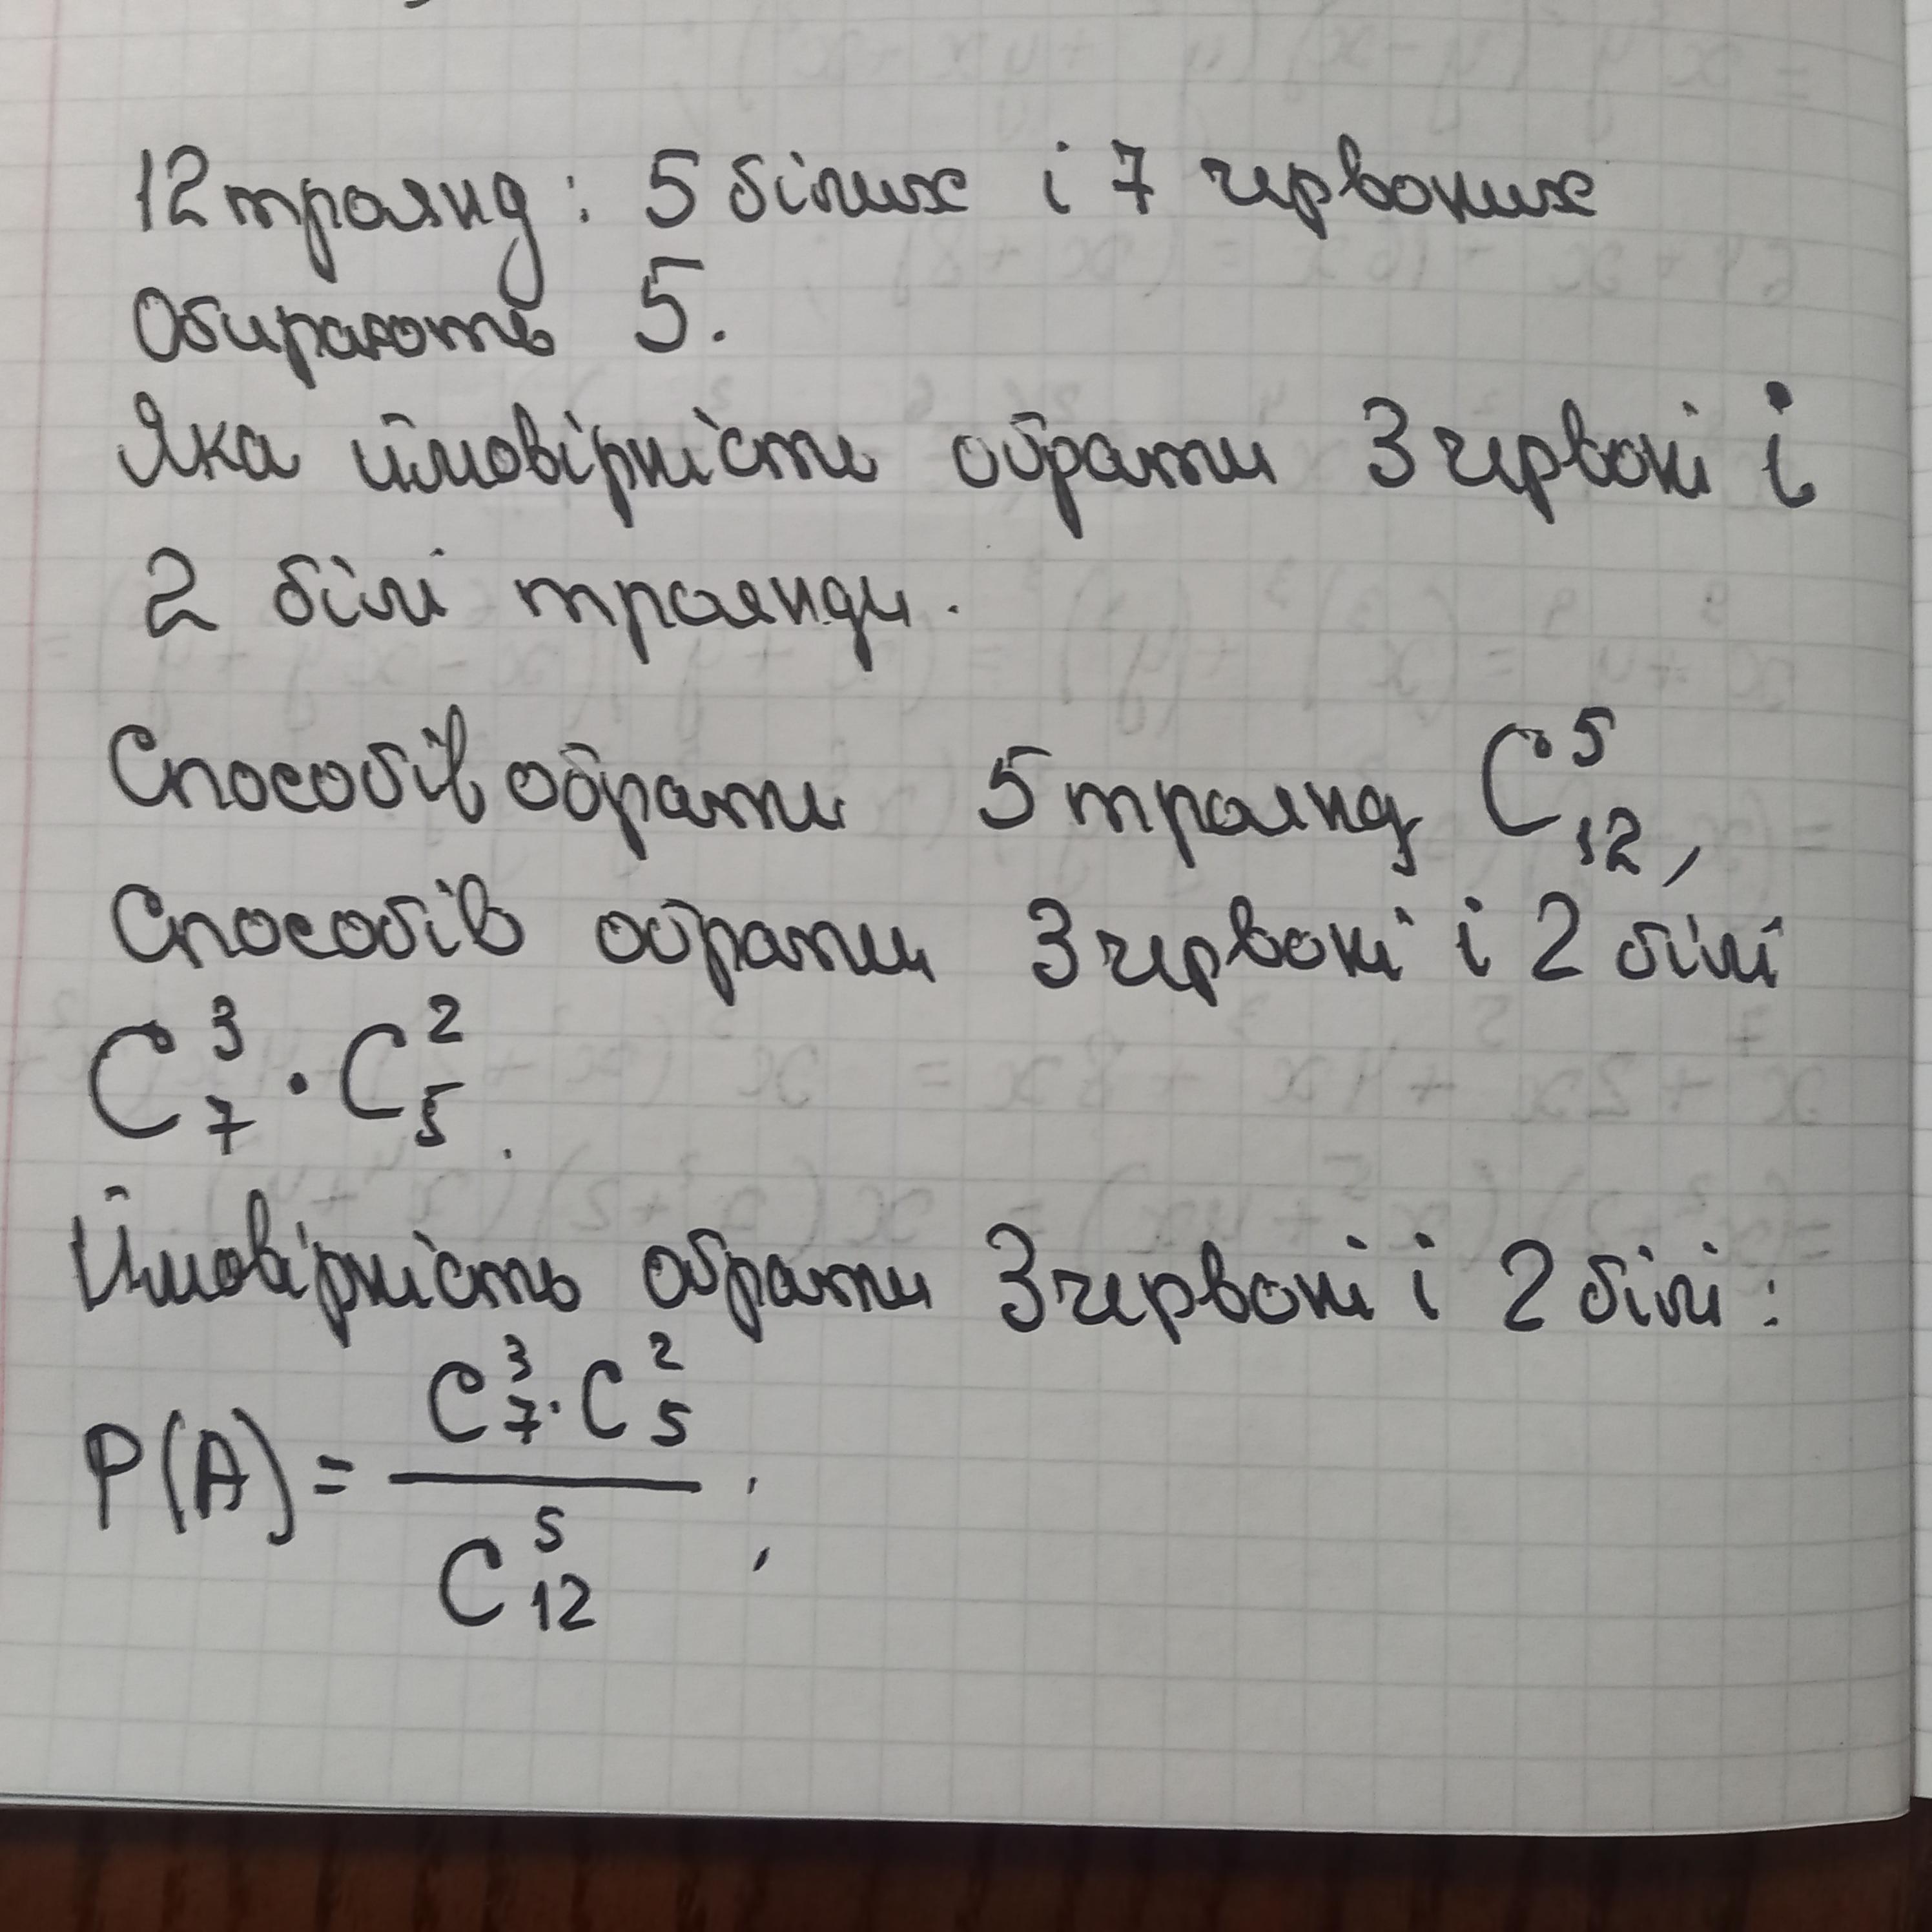 12 троянд : 5 білих і 7 червоних
Обирають 5.
Яка ймовірність обрати 3 червоні і
2 білі троянди.
Способів обрати 5 троянд C₁₂⁵,
Способів обрати 3 червоні і 2 білі
C₇³ · C₅².
Ймовірність обрати 3 червоні і 2 білі :
P(A) = (C₇³ · C₅²) / C₁₂⁵ ;